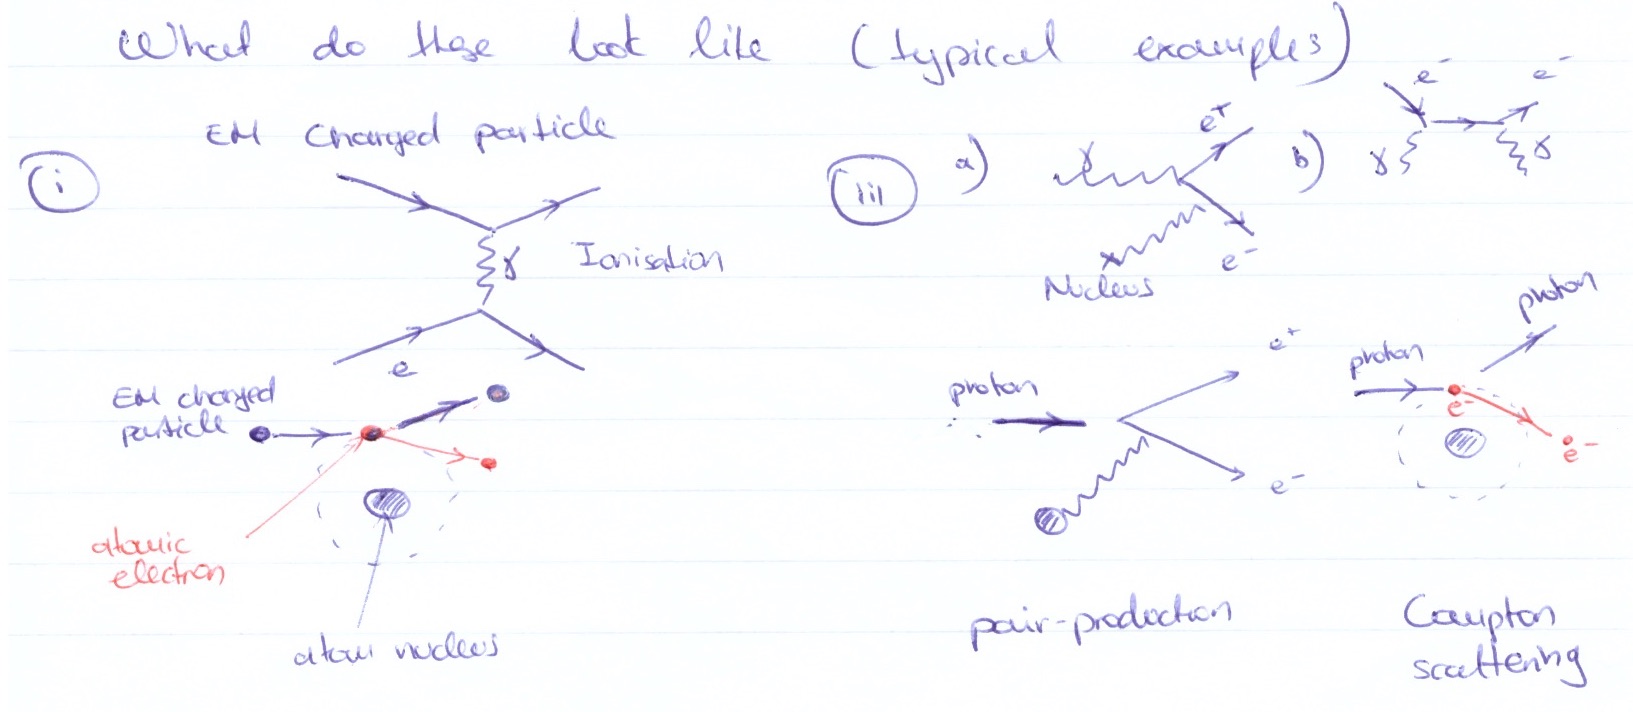 What do these look like (typical examples)
EM Charged particle
i
γ
Ionisation
e
EM charged
particle
atomic
electron
atom nucleus
iii
a)
γ
e+
e-
Nucleus
b)
e-
e-
γ
γ
photon
e+
e-
pair-production
photon
photon
e-
e-
Compton
scattering